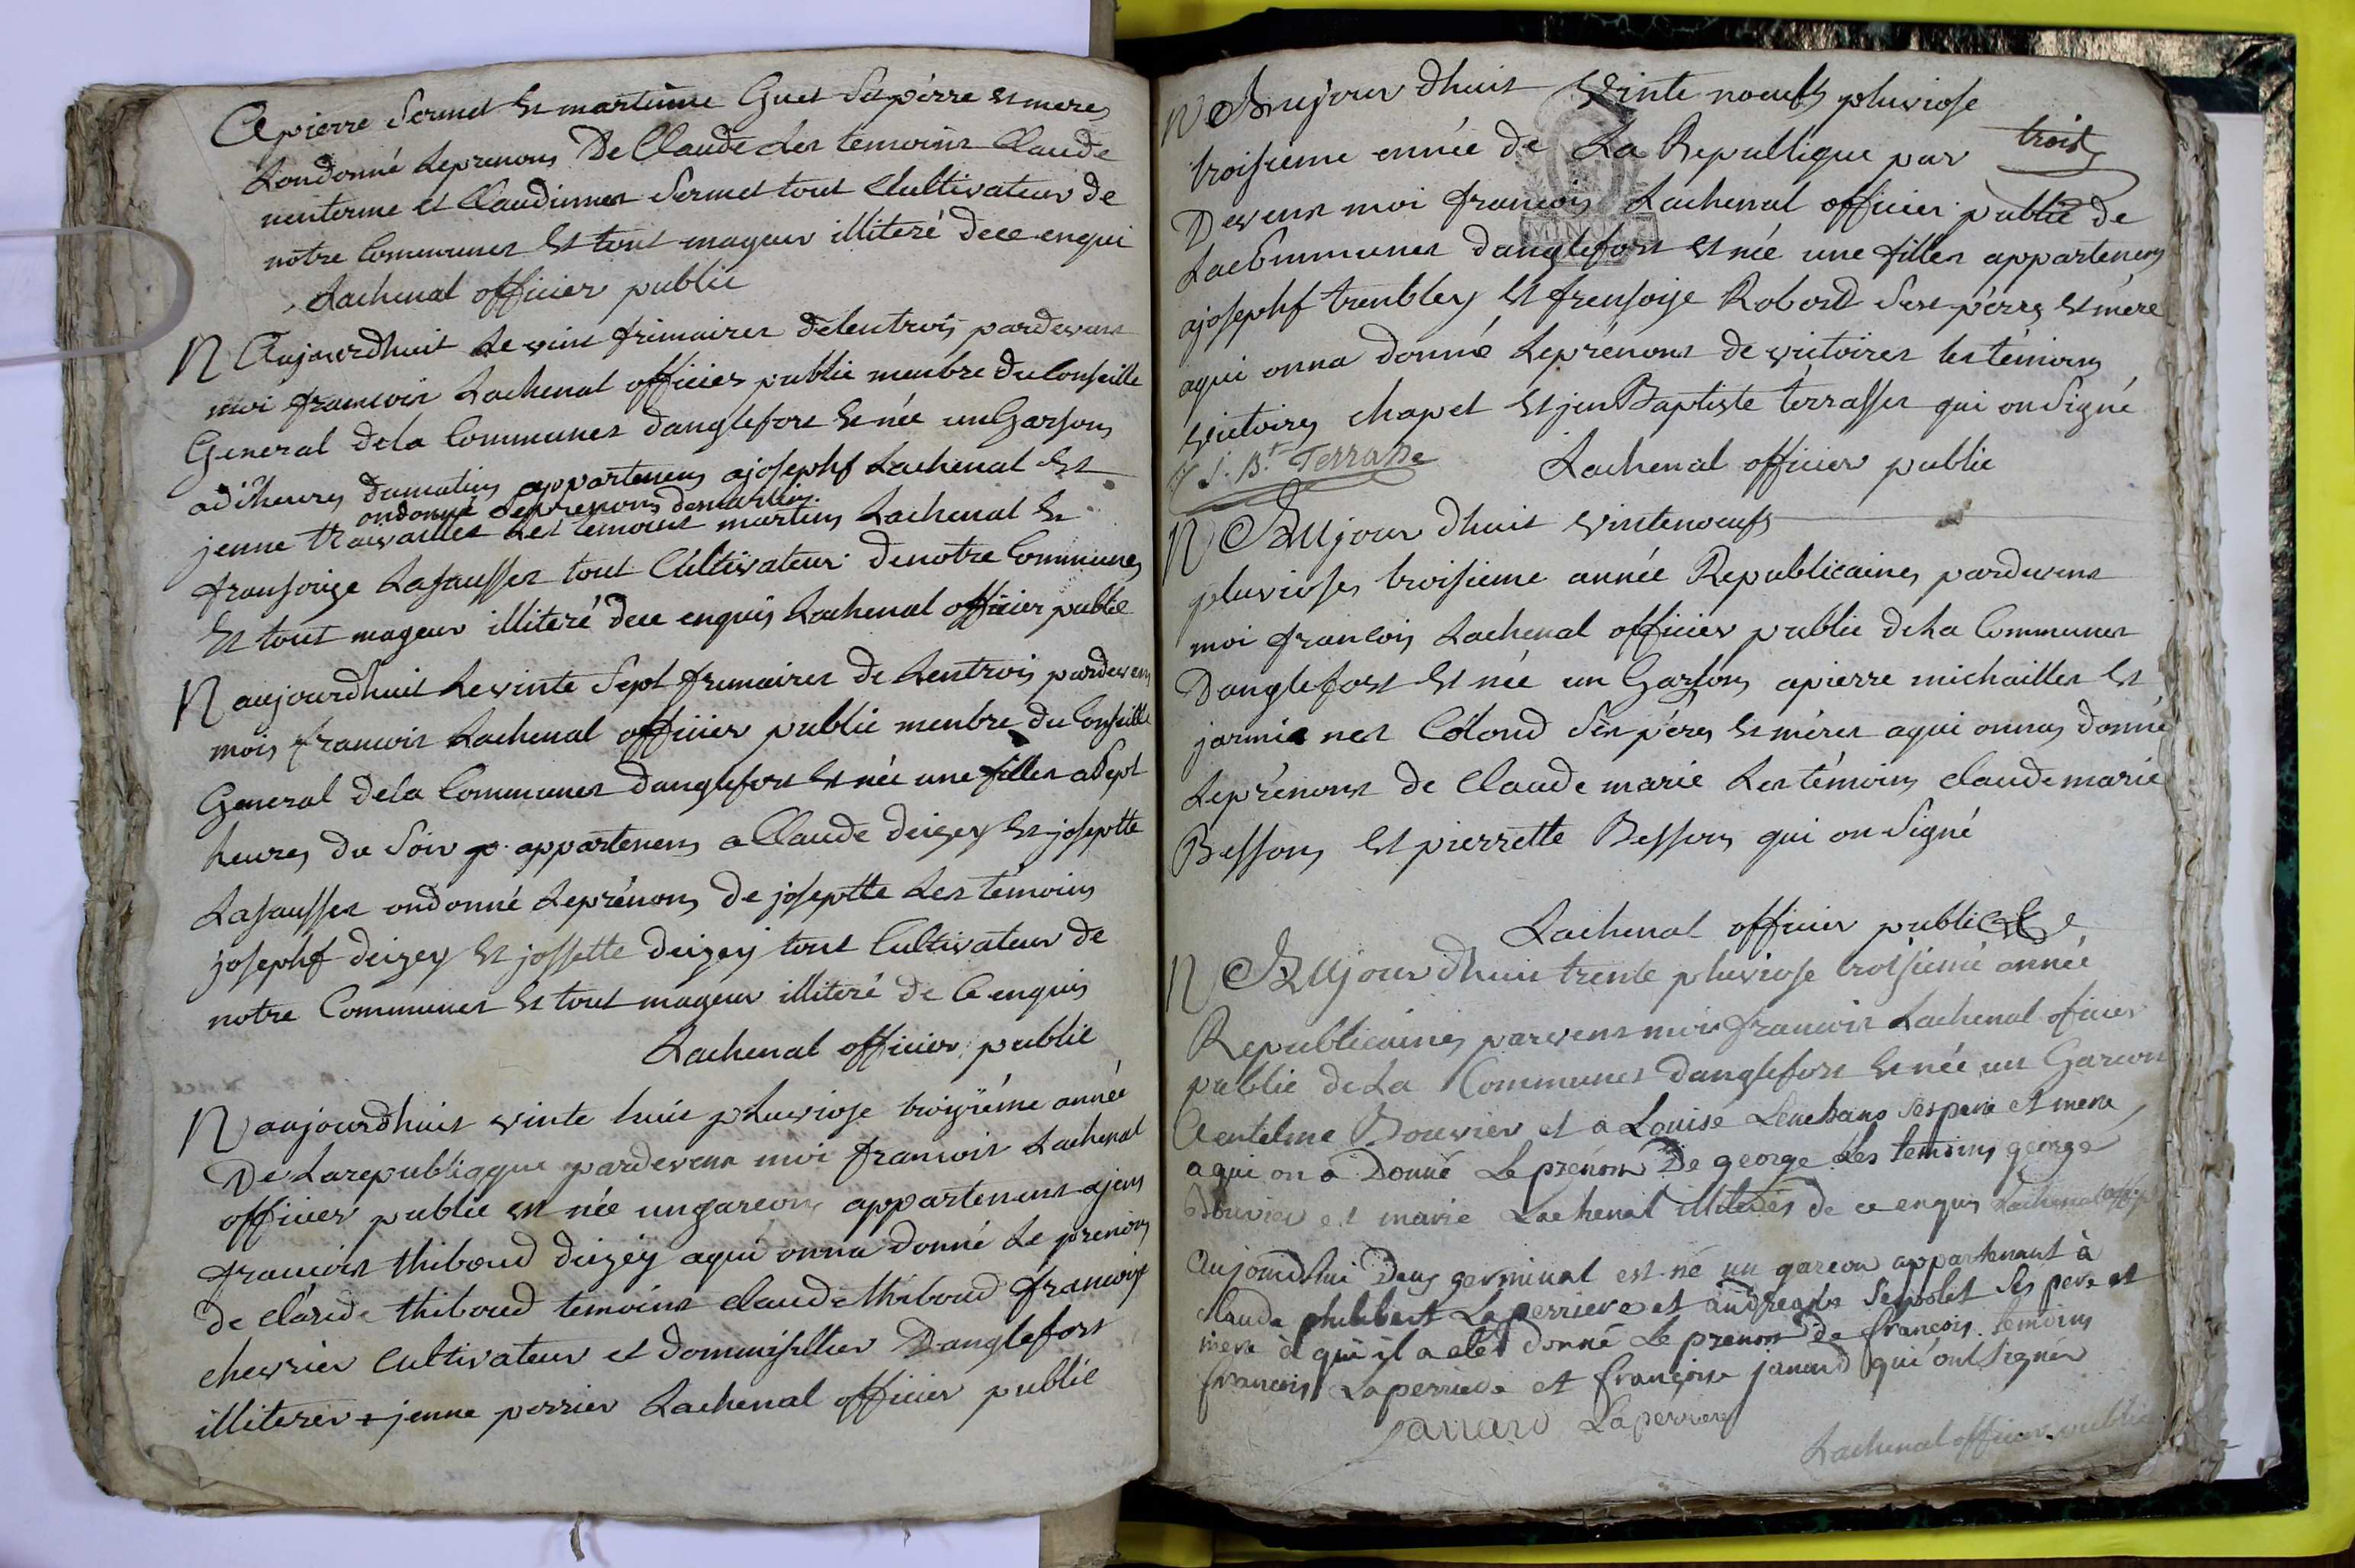 Apierre Sermet Et martinne Guet Set pérre Et meres
Londonné Leprenons De Claude Les temoins Claude
et Claudinnes Sermet tout Cultivateur de
notre Communes Et tout mageur illiteré dece enqui
Lachenal officier public
N Aujourdhuit Le vint frimaires delentrois pardevant
moi francois Lachenal officier public menbre du Conseille
General dela Communes danglefort Et née un Garsons
adiheures dumatins appartenens ajosephf Lachenal Et
ondonné Leprenons demartin
jenne travailles Les temoins martins Lachenal Et
fransoize Lasausses tout Cultivateur denotre Communes
Et tout mageur illiteré dece enquis Lachenal officier public
N aujourdhuit Levinte Sept frimaires de Lentrois pardevens
mois francois Lachenal officier public menbre du Conseille
General dela Communes danglefort Et née une filles aSept
heures du Soir appartenens a Claude deizey Et joseptte
Lasausses ondonné Leprénons de joseptte Les témoins
josephf deizey Et jossette deizey tout Cultivateur de
notre Communes Et tout mageur illiteré de Ce enquis
Lachenal officier public
N aujourdhuit vinte huit pluviose troiziéme année
De Larepubliqque pardevens moi francois Lachenal
officier public Est née ungarcons appartenens ajens
francois thiboud deizéy aqui onna donné Le prenons
de claude thiboud temoins claude thiboud francoise
chevrier Cultivateur et dommisillier Danglefort
illiteres + jenne perrier Lachenal officier public
N Aujour dhuit Vinte noeufs pluviose
troisieme année de La Republique par trois
Devens moi francois Lachenal officier public de
La Communes danglefort Et née une filles appartenens
ajosephf trenbley Et frensoise Robord Ses péres Et mére
aqui onna donné Leprénons de victoires les témoins
victoires chapet Et jen Baptiste térrasses qui on Signé
J. B.te Terrasse Lachenal officier public
N Aujour dhuit Vintenoeufs
pluvioses troisieme année Republicaines pardevens
moi francois Lachenal officier public dela Communes
Danglefort Et née un Garsons apierre michailles Et
jarmines Colond Ses péres Et méres aqui onnas donné
Leprénons de Claude marie Les témoins claude marie
Bessons Et pierrette Bessons qui on Signé
Lachenal officier public
N Aujour dhuit trente pluviose troisiemé année
Republicaines parvens moi francois Lachenal oficier
public de La Communes danglefort Et née un Garcon
a entelme Bouvier et a Louise ses pere et mere
a qui on a Donné Le prénom De george Les temoins george
Bouvier et marie Lachenal illiteres de ce enquis Lachenal
Aujourdhui Deux germinal est né un garcon appartenant à
Claude philibert Laperriere et ses pere et
mere à qui il a eté donné Le prenom De francois temoins
francois Laperriere et francoise janard qui ont signés
Janard Laperriere
Lachenal officier public